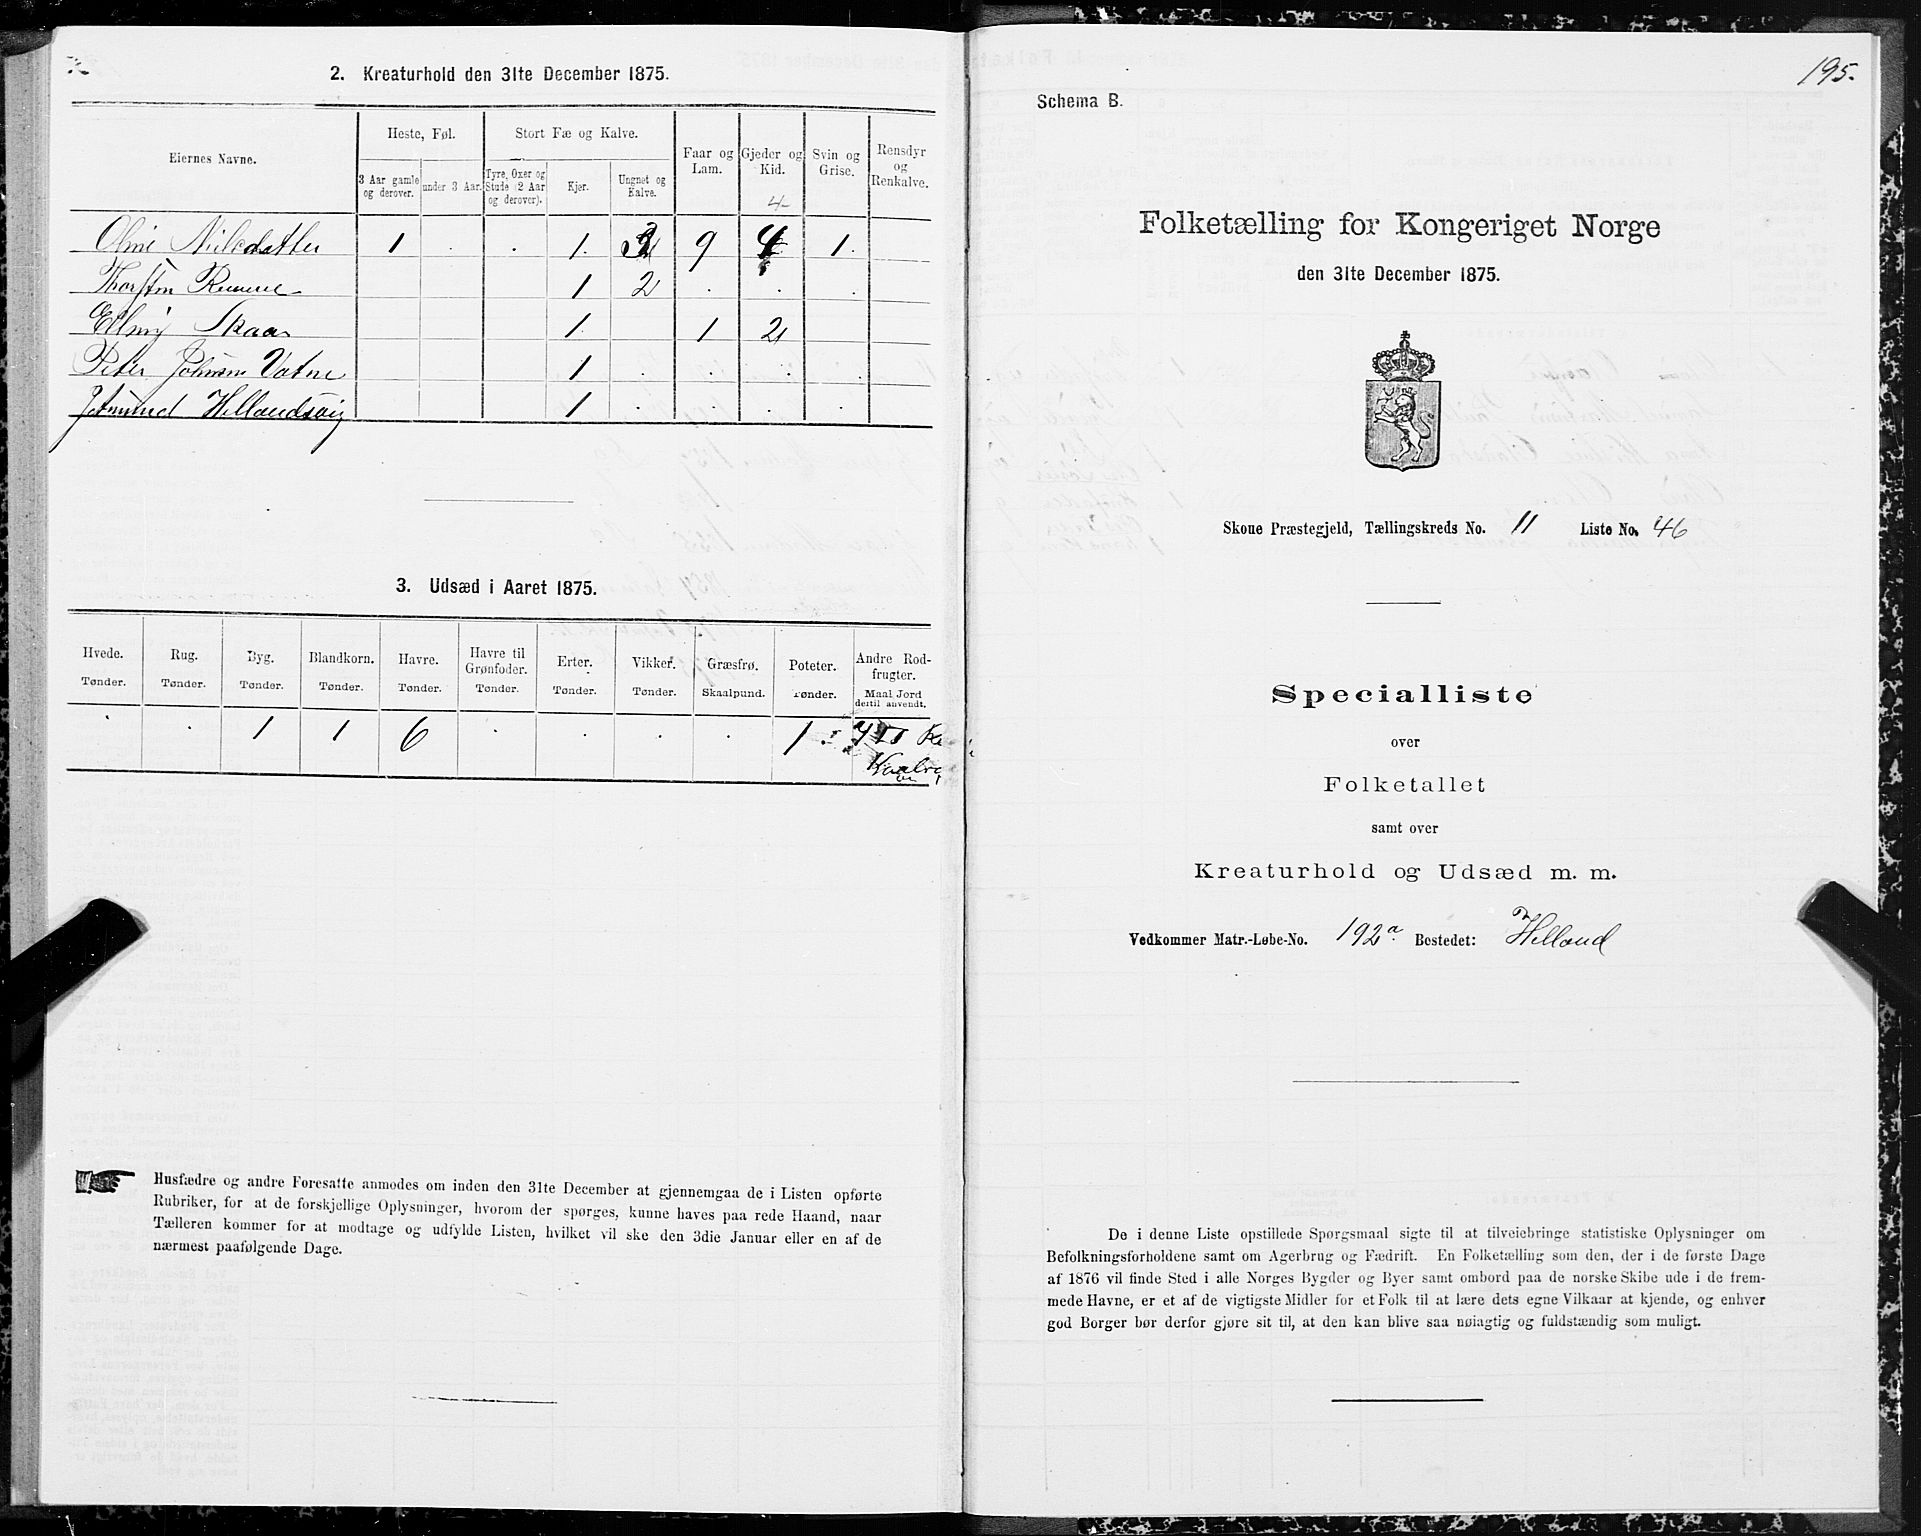 2. Kreaturhold den 31te December 1875.
Eiernes Navne.
Heste, Føl.
Stort Fæ og Kalve.
Faar og Lam.
Gjeder og Kid.
Svin og Grise.
Rensdyr og Renkalve.
3 Aar gamle og derover.
under 3 Aar.
Tyre, Oxer og Stude (2 Aar og derover).
Kjør.
Ungnet og Kalve.
4
Nilsdatter 1 . . 1. 9 4 1.
Thorsten 1 2 . . .
Skaar 1. 1 2
Peter Johnsen Vatne 1 . . . .
Hellandsvig 1 . . . .
3. Udsæd i Aaret 1875.
Hvede. Tønder.
Rug. Tønder.
Byg. Tønder.
Blandkorn. Tønder.
Havre. Tønder.
Havre til Grønfoder. Tønder.
Erter. Tønder.
Vikker. Tønder.
Græsfrø. Skaalpund.
Poteter. Tønder.
Andre Rodfrugter. Maal Jord dertil anvendt.
. . 1 1 6 . . . . 1
Husfædre og andre Foresatte anmodes om inden den 31te December at gjennemgaa de i Listen opførte
Rubriker, for at de forskjellige Oplysninger, hvorom der spørges, kunne haves paa rede Haand, naar
Tælleren kommer for at modtage og udfylde Listen, hvilket vil ske den 3die Januar eller en af de
nærmest paafølgende Dage.
195.
Schema B.
Folketælling for Kongeriget Norge
den 31te December 1875.
Skoue Præstegjeld, Tællingskreds No. 11 Liste No. 46
Specialliste
over
Folketallet
samt over
Kreaturhold og Udsæd m. m.
Vedkommer Matr.-Løbe-No. 192a. Bostedet: Helland
De i denne Liste opstillede Spørgsmaal sigte til at tilveiebringe statistiske Oplysninger om
Befolkningsforholdene samt om Agerbrug og Fædrift. En Folketælling som den, der i de første Dage
af 1876 vil finde Sted i alle Norges Bygder og Byer samt ombord paa de norske Skibe ude i de frem-
mede Havne, er et af de vigtigste Midler for et Folk til at lære dets egne Vilkaar at kjende, og enhver
god Borger bør derfor gjøre sit til, at den kan blive saa nøiagtig og fuldstændig som muligt.